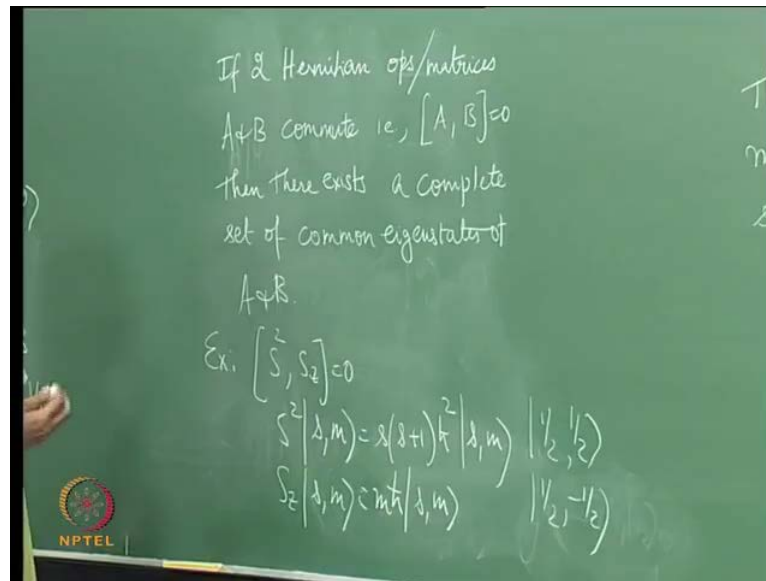 If 2 Hermitian ops/matrices
A & B commute ie, [A, B]=0
then there exists a complete
set of common eigenstates of
A & B.
Ex: [S², S_z]=0
S²|s,m⟩=s(s+1)ħ²|s,m⟩ |½,½⟩
S_z|s,m⟩=mħ|s,m⟩ |½,-½⟩
T
m
s
NPTEL